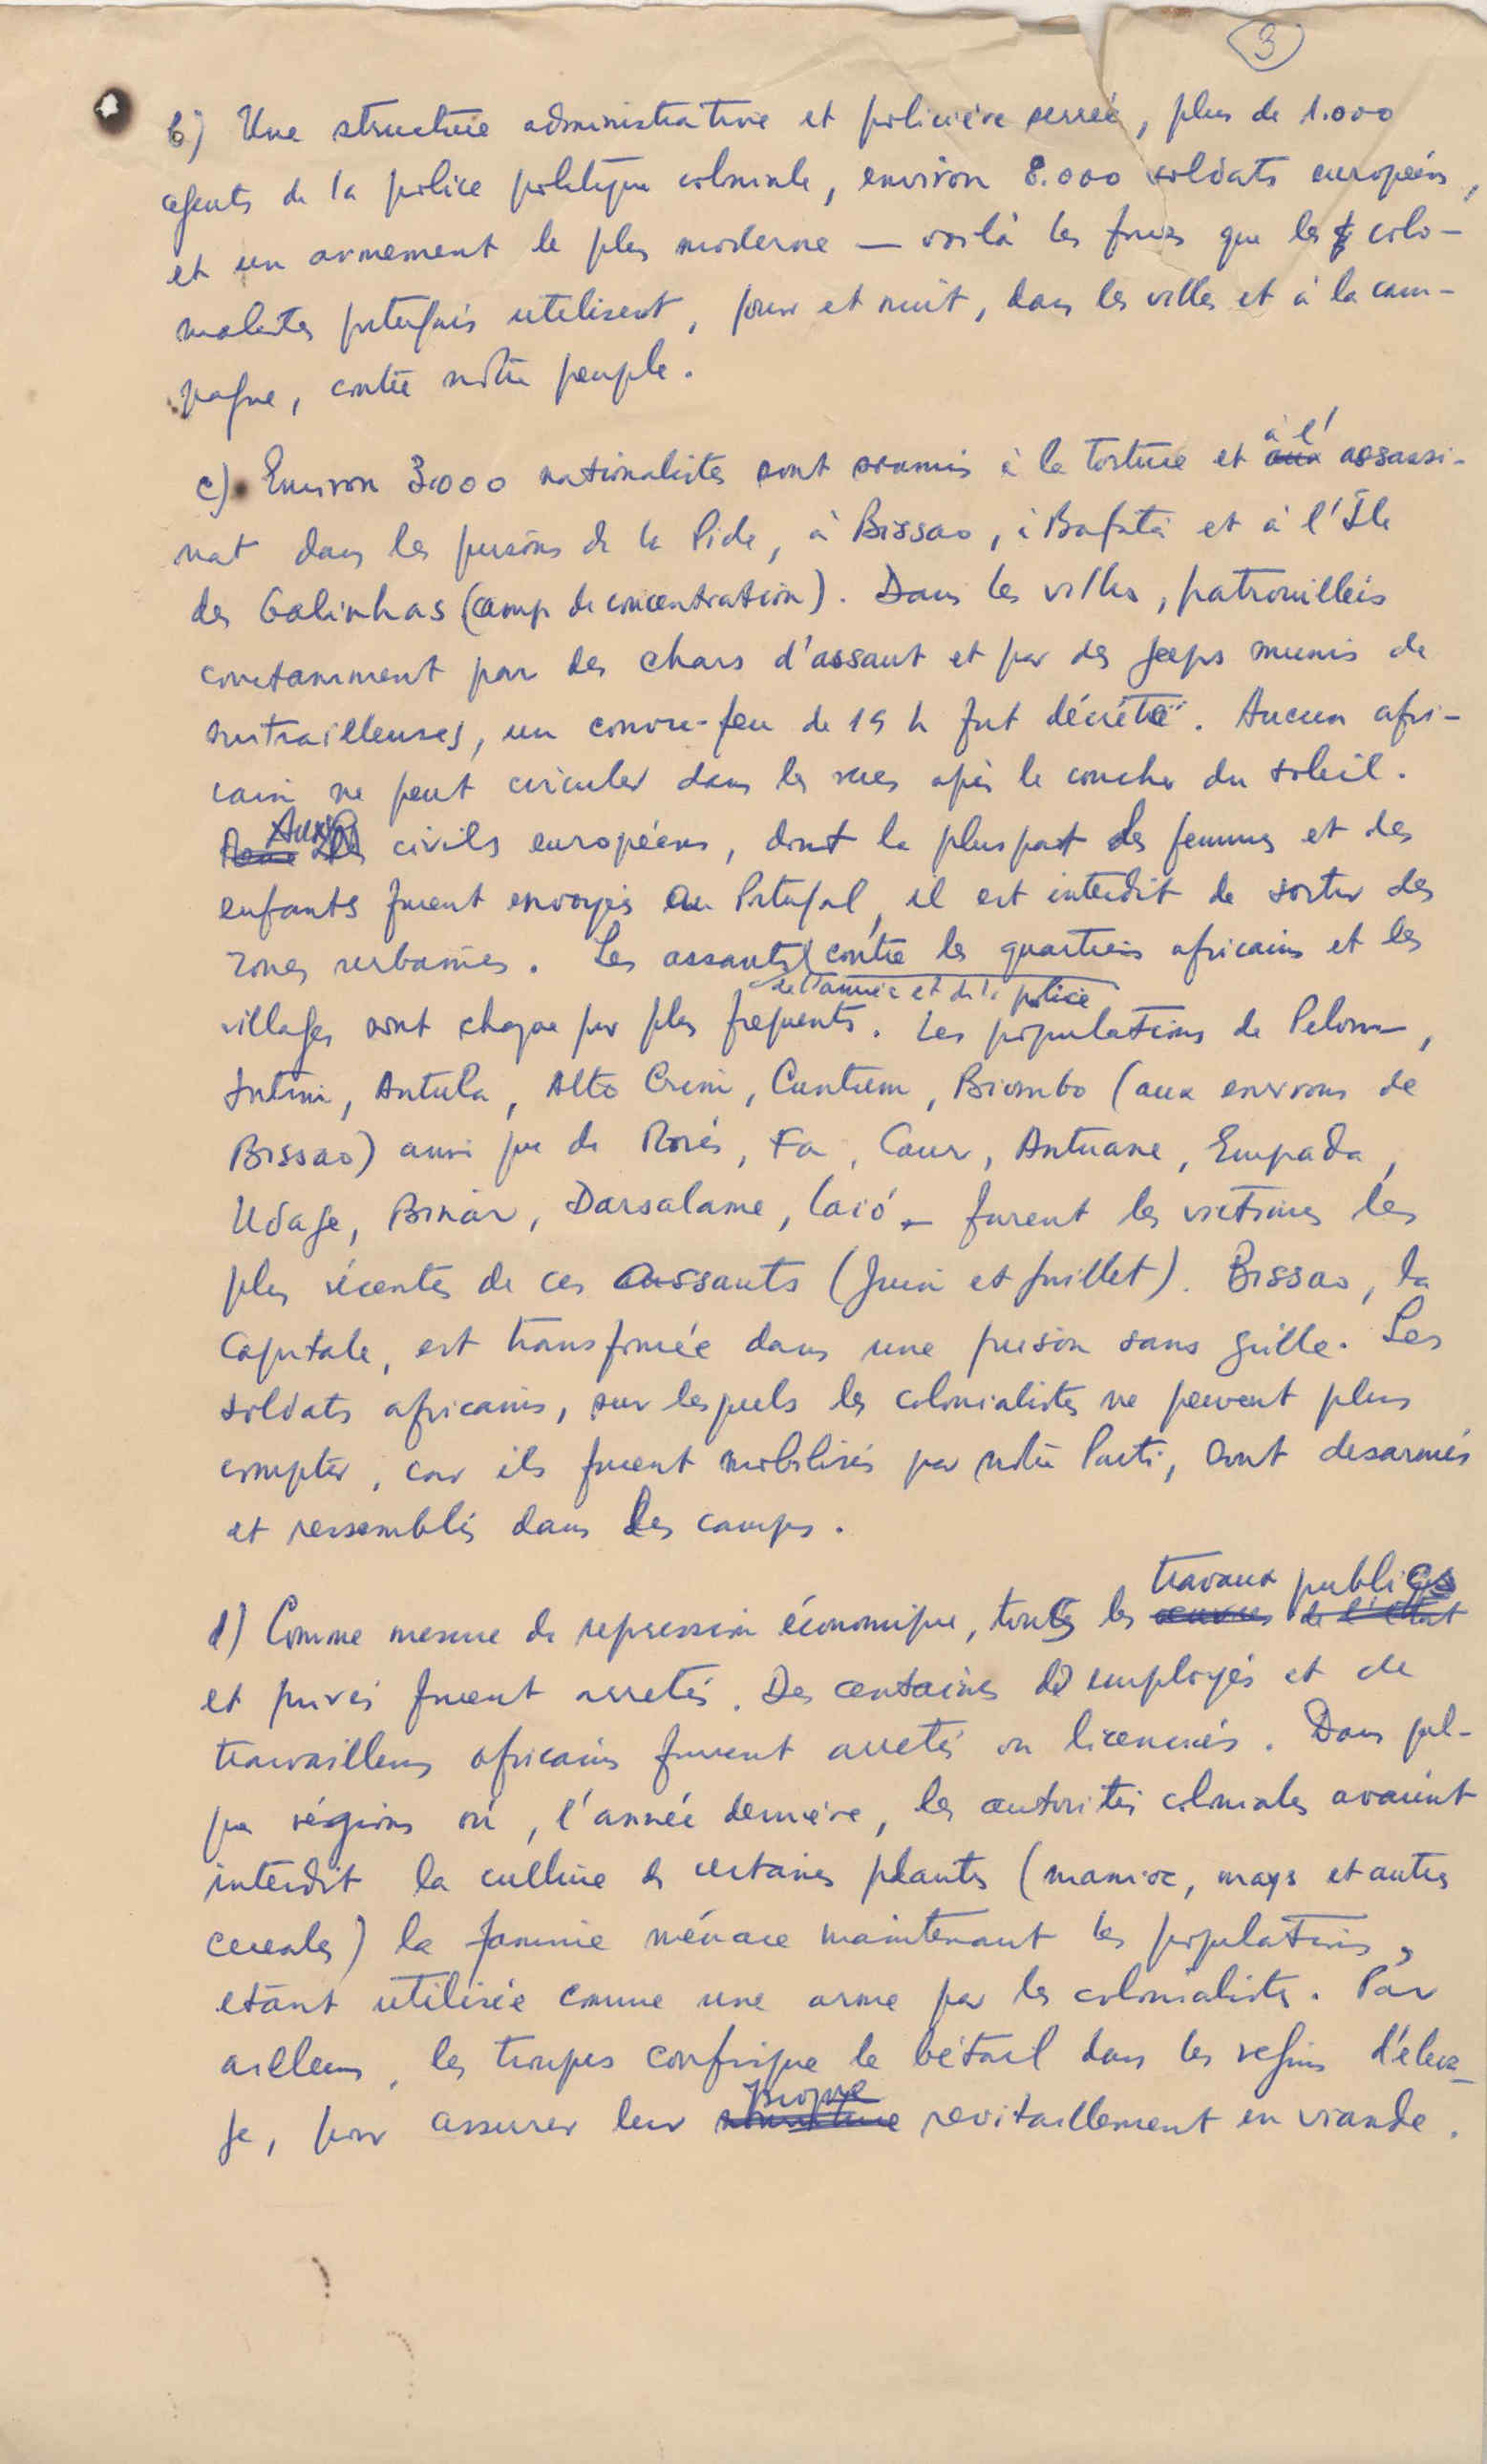 3
b) Une structure administrative et policière serrée, plus de 1.000
agents de la police politique coloniale, environ 8.000 soldats européens,
et un armement le plus moderne — voilà les forces que les colo-
nialistes portugais utilisent, jour et nuit, dans les villes et à la cam-
pagne, contre notre peuple.
c) Environ 3.000 nationalistes sont soumis à la torture et à l'assassi-
nat dans les prisons de la Pide, à Bissao, à Bafatà et à l'Île
des Galinhas (camp de concentration). Dans les villes, patrouillés
constamment par des chars d'assaut et par des jeeps munis de
mitrailleuses, un couvre-feu de 19 h fut décrété. Aucun afri-
cain ne peut circuler dans les rues après le coucher du soleil.
Aux civils européens, dont la pluspart des femmes et des
enfants furent envoyés au Portugal, il est interdit de sortir des
zones urbaines. Les assauts de l'armée et de la police contre les quartiers africains et les
villages sont chaque jour plus frequents. Les populations de Pelom,
Intim, Antula, Alto Crim, Cuntum, Biombo (aux environs de
Bissao) ainsi que de Morés, Fa, Caur, Antuane, Empada,
Udage, Binár, Darsalame, Caió — furent les victimes les
plus récentes de ces assauts (Juin et juillet). Bissao, la
Capitale, est transformée dans une prison sans grille. Les
soldats africains, sur lesquels les colonialistes ne peuvent plus
compter, car ils furent mobilisés par notre Parti, sont desarmés
et rassemblés dans des camps.
d) Comme mesure de repression économique, touts les travaux publics
et privés furent arretés. Des centaines de employés et de
travailleurs africains furent arretés ou licenciés. Dans quel-
que régions où, l'année dernière, les autorités coloniales avaient
interdit la culture de certaines plantes (manioc, mays et autres
cereales) la famine ménace maintenant les populations,
etant utilisée comme une arme par les colonialistes. Par
ailleurs, les troupes confisque le bétail dans les regions d'éleva-
ge, pour assurer leur propre ravitaillement en viande.